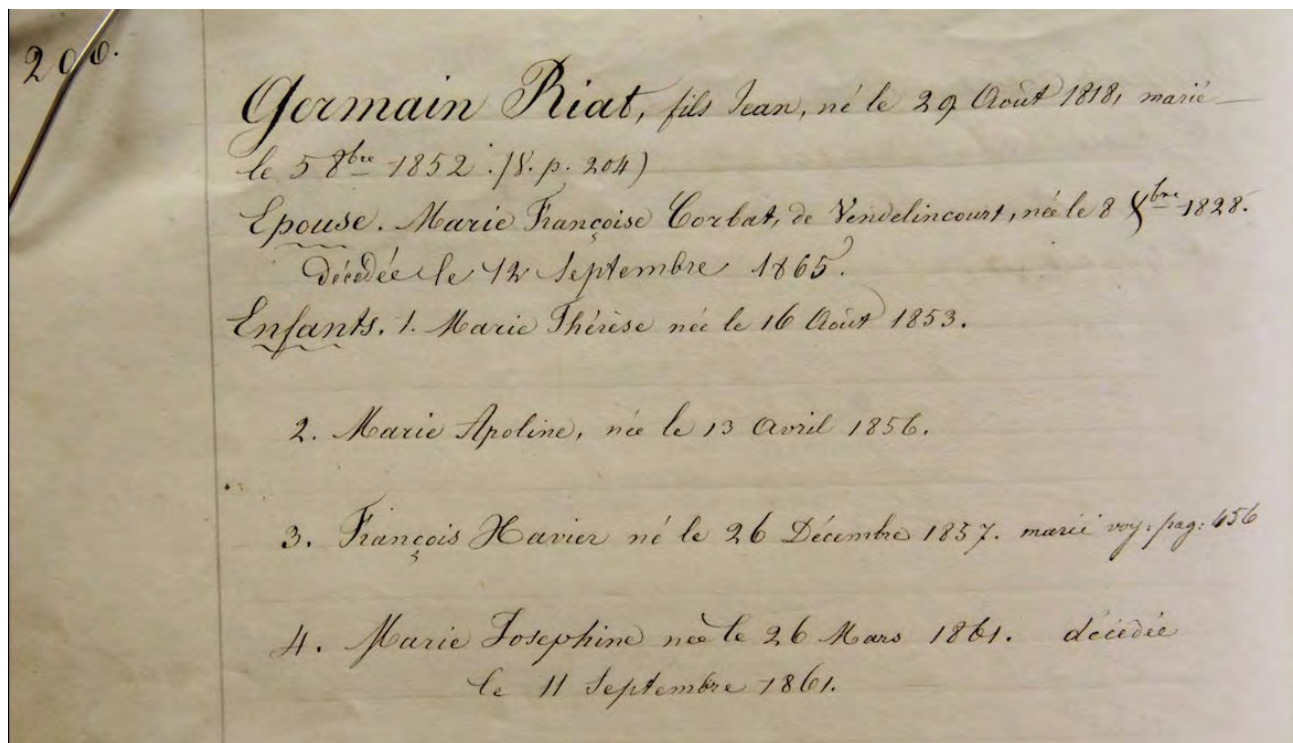 200.
Germain Riat, fils Jean, né le 29 Août 1818, marié
le 5 8bre 1852. (V. p. 204)
Epouse. Marie Françoise Corbat, de Vendelincourt, née le 8 Xbre 1828.
décédée le 12 Septembre 1865.
Enfants. 1. Marie Thérèse née le 16 Août 1853.
2. Marie Apoline, née le 13 Avril 1856.
3. François Xavier né le 26 Décembre 1857. marié voy: pag: 456
4. Marie Josephine née le 26 Mars 1861. décédée
le 11 Septembre 1861.